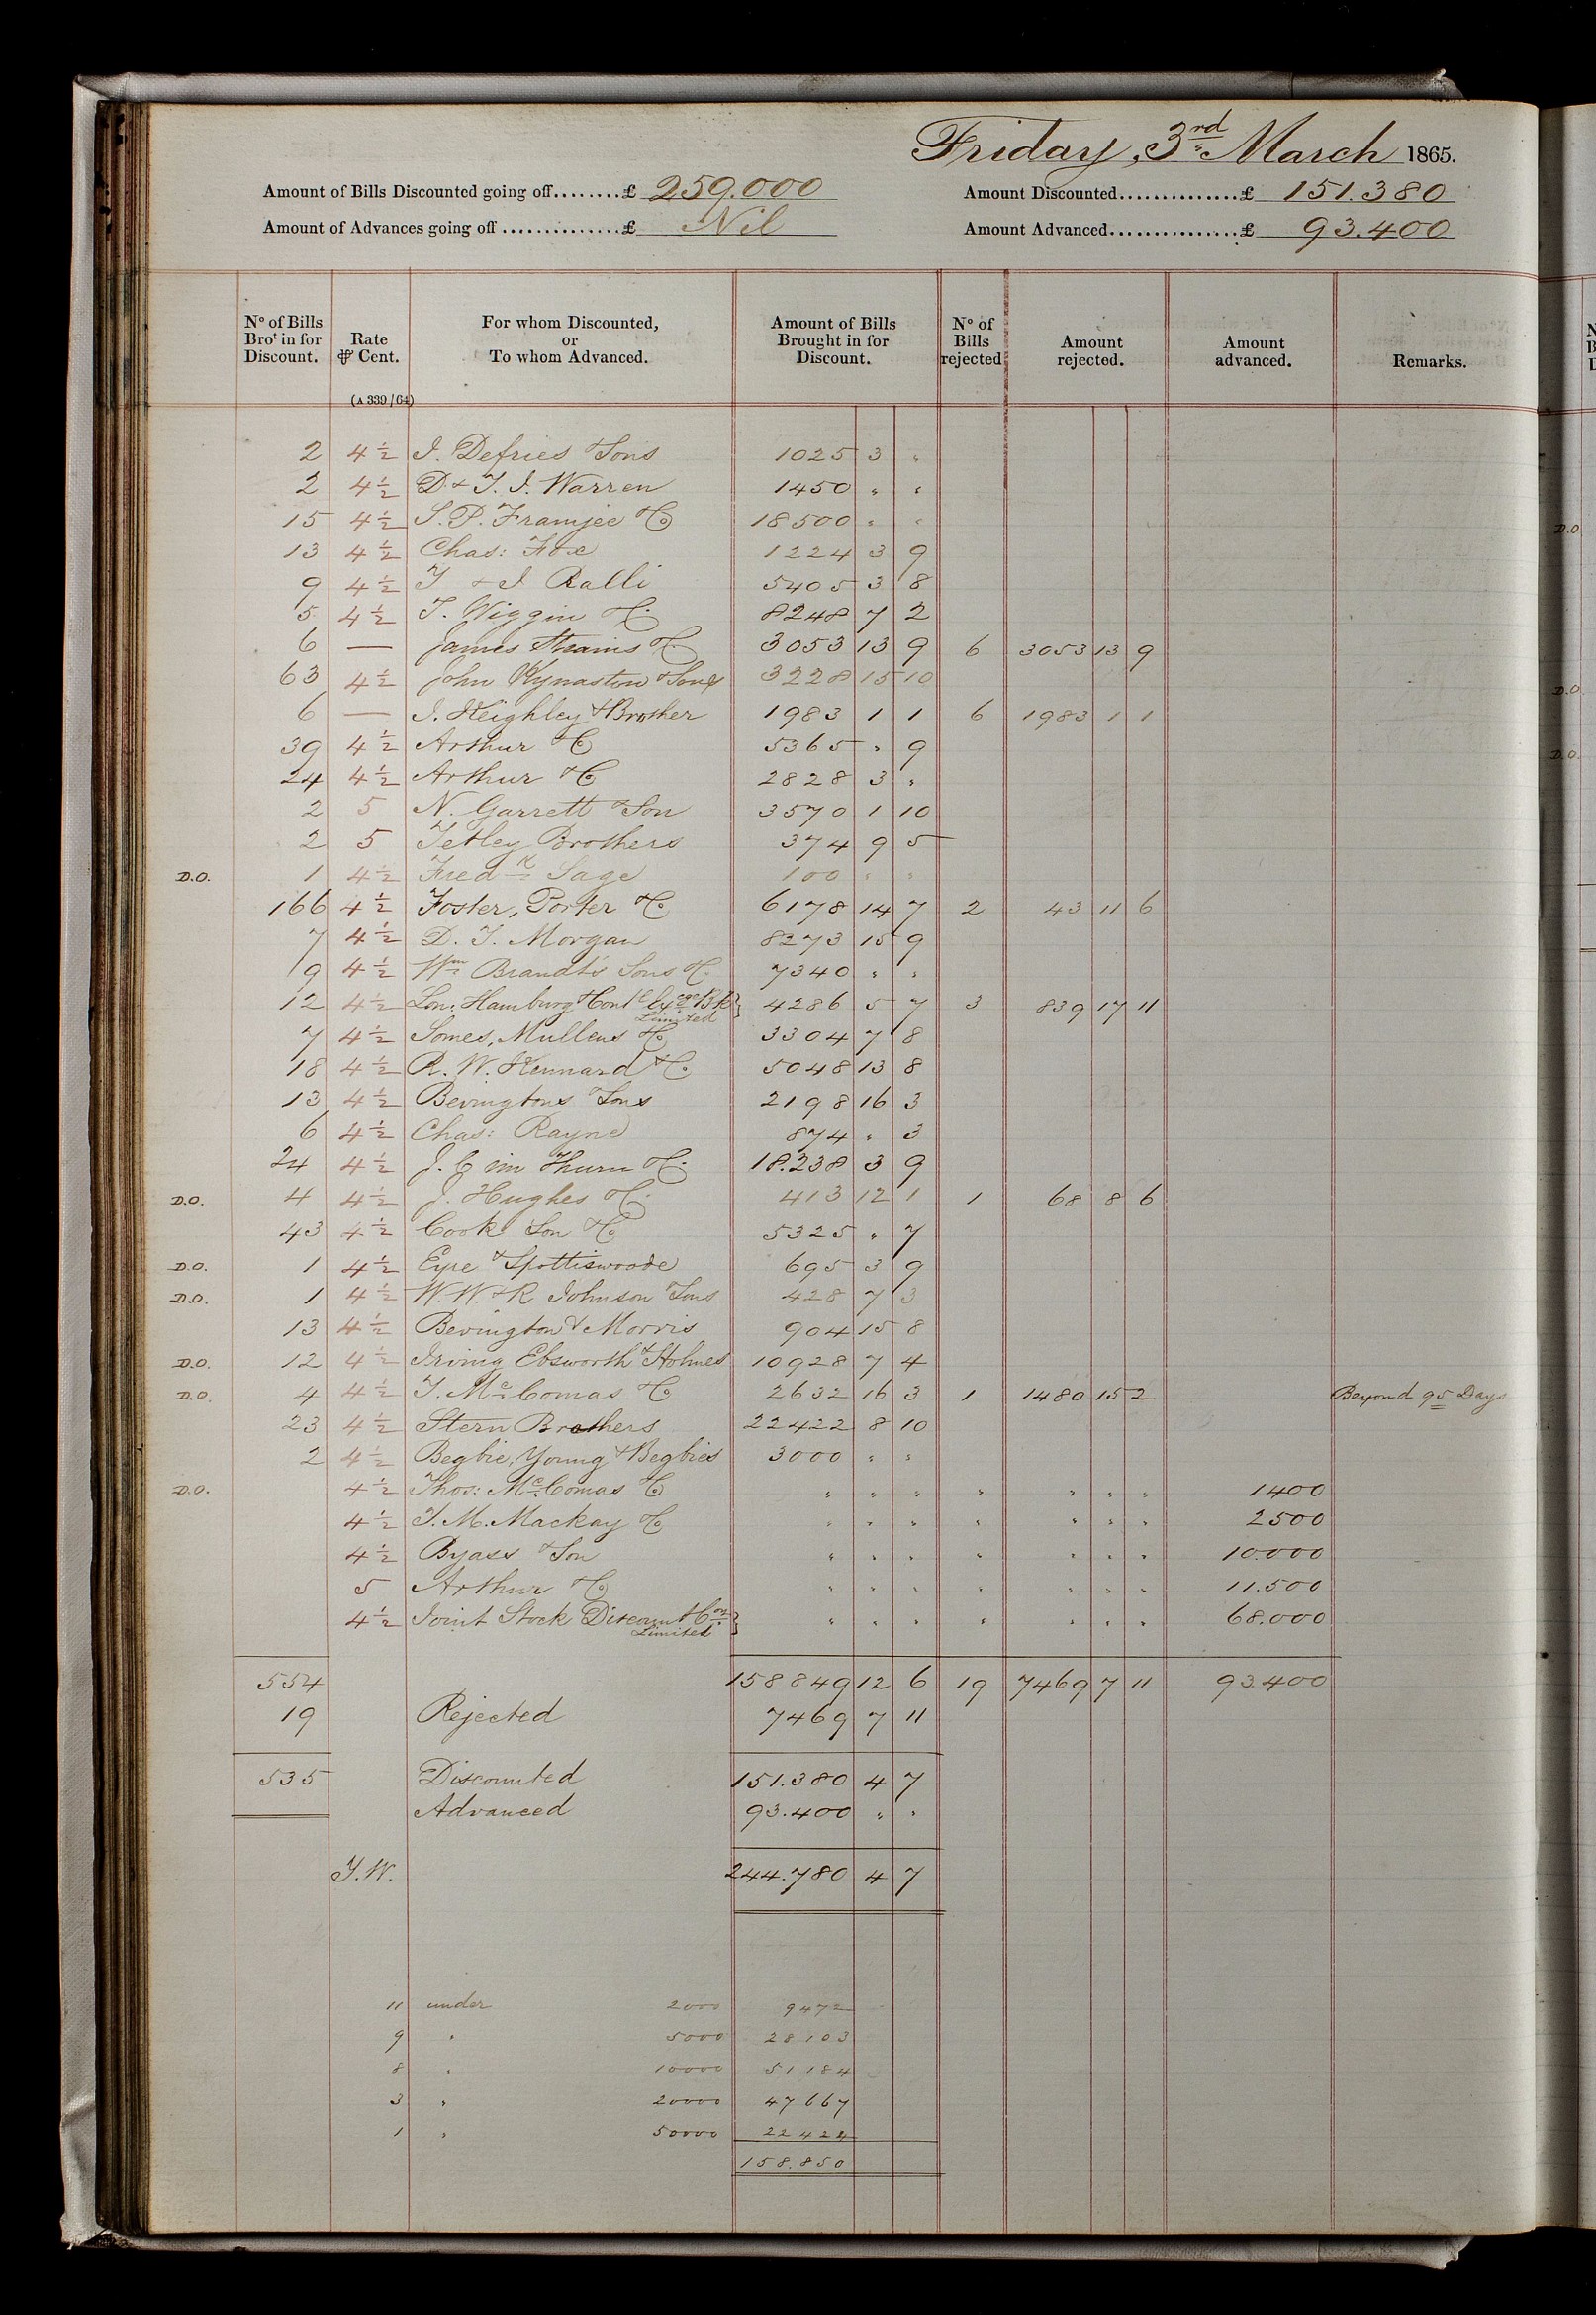 Friday, 3rd March 1865.
Amount of Bills Discounted going off........£ 259.000 Amount Discounted..............£ 151.380
Amount of Advances going off..............£ Nil Amount Advanced................£ 93.400
No of Bills Brot in for Discount. Rate ⅌ Cent. For whom Discounted, or To whom Advanced. Amount of Bills Brought in for Discount. No of Bills rejected Amount rejected. Amount advanced. Remarks.
(A 339/64)
2 4½ J. Defries & Sons 1025 3 "
2 4½ D & T. J. Warren 1450 " "
15 4½ S. P. Framjee & Co 18500 " "
13 4½ Chas: Fox 1224 3 9
9 4½ T & J Ralli 5405 3 8
5 4½ T. Wiggin & Co. 8248 7 2
6 — James Stearns & Co. 3053 13 9 6 3053 13 9
63 4½ John Kynaston & Sons 3228 15 10
6 — J. Keighley & Brother 1983 1 1 6 1983 1 1
39 4½ Arthur & Co 5365 " 9
24 4½ Arthur & Co 2828 3 "
2 5 N. Garrett & Son 3570 1 10
2 5 Tetley Brothers 374 9 5
D.O. 1 4½ Fredk Sage 100 " "
166 4½ Foster, Porter & Co 6178 14 7 2 43 11 6
7 4½ D. T. Morgan 8273 15 9
9 4½ Wm Brandt's Sons & Co. 7340 " "
12 4½ Lon: Hamburg & Contl Exge Bk Limited } 4286 5 7 3 839 17 11
7 4½ Somes, Mullens & Co 3304 7 8
18 4½ R. W. Kennard & Co. 5048 13 8
13 4½ Bevingtons & Sons 2198 16 3
6 4½ Chas: Rayne 874 " 3
24 4½ J. C im Thurn & Co. 18.238 3 9
D.O. 4 4½ J. Hughes & Co. 413 12 1 1 68 8 6
43 4½ Cook Son & Co 5325 " 7
D.O. 1 4½ Eyre & Spottiswoode 695 3 9
D.O. 1 4½ W. W. & R Johnson & Sons 428 7 3
13 4½ Bevington & Morris 904 15 8
D.O. 12 4½ Irving Ebsworth & Holmes 10928 7 4
D.O. 4 4½ T. Mc Comas & Co 2632 16 3 1 1480 15 2 Beyond 95 Days
23 4½ Stern Brothers 22422 8 10
2 4½ Begbie, Young & Begbies 3000 " "
D.O. 4½ Thos: Mc Comas & Co " " " " " " " 1400
4½ T. M. Mackay & Co " " " " " " " 2500
4½ Byass & Son " " " " " " " 10.000
5 Arthur & Co " " " " " " " 11.500
4½ Joint Stock Discount Con Limited } " " " " " " " 68.000
554 158849 12 6 19 7469 7 11 93.400
19 Rejected 7469 7 11
535 Discounted 151.380 4 7
Advanced 93.400 " "
T.W. 244.780 4 7
11 under 2000 9472
9 " 5000 28103
8 " 10000 51184
3 " 20000 47667
1 " 50000 22424
158.850